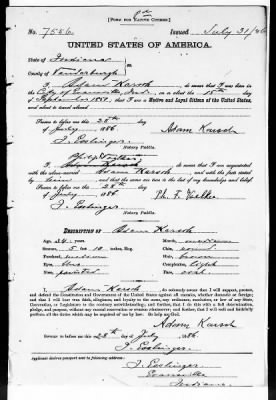 [FORM FOR NATIVE CITIZEN.]
No. 7556. Issued July 31/86
UNITED STATES OF AMERICA.
State of Indiana
County of Vanderburgh
I, Adam Karsch, do swear that I was born in
the City of Evansville, Ind., on or about the day
of September 1851, that I am a Native and Loyal Citizen of the United States,
and about to travel abroad.
Sworn to before me this 28th
of July 1886 Adam Karsch
Notary Public.
I, do swear that I am acquainted
with the above-named Adam Karsch and with the facts
stated by him, and that the same are true to the best of my knowledge and belief.
Sworn to before me this 28th
of July 1886 Ph. F.
Notary Public.
DESCRIPTION OF Adam Karsch
Age, 34 years. Mouth, medium
Stature, 5 10 inches, Eng. Chin,
Forehead, medium Hair, brown
Eyes, Complexion, light
Nose, pointed Face, oval
I, Adam Karsch, do solemnly swear that I will support, protect,
and defend the Constitution and Government of the United States against all enemies, whether domestic or foreign;
and that I will bear true faith, allegiance, and loyalty to the same, any ordinance, resolution, or law of any State,
Convention, or Legislature to the contrary notwithstanding; and further, that I do this with a full determination,
pledge, and purpose, without any mental reservation or evasion whatsoever; and further, that I will well and faithfully
perform all the duties which may be required of me by law. So help me God.
Adam Karsch
Sworn to before me this 28th day of July, 1886.
Notary Public.
Applicant desires passport sent to following address:
Evansville
Indiana.